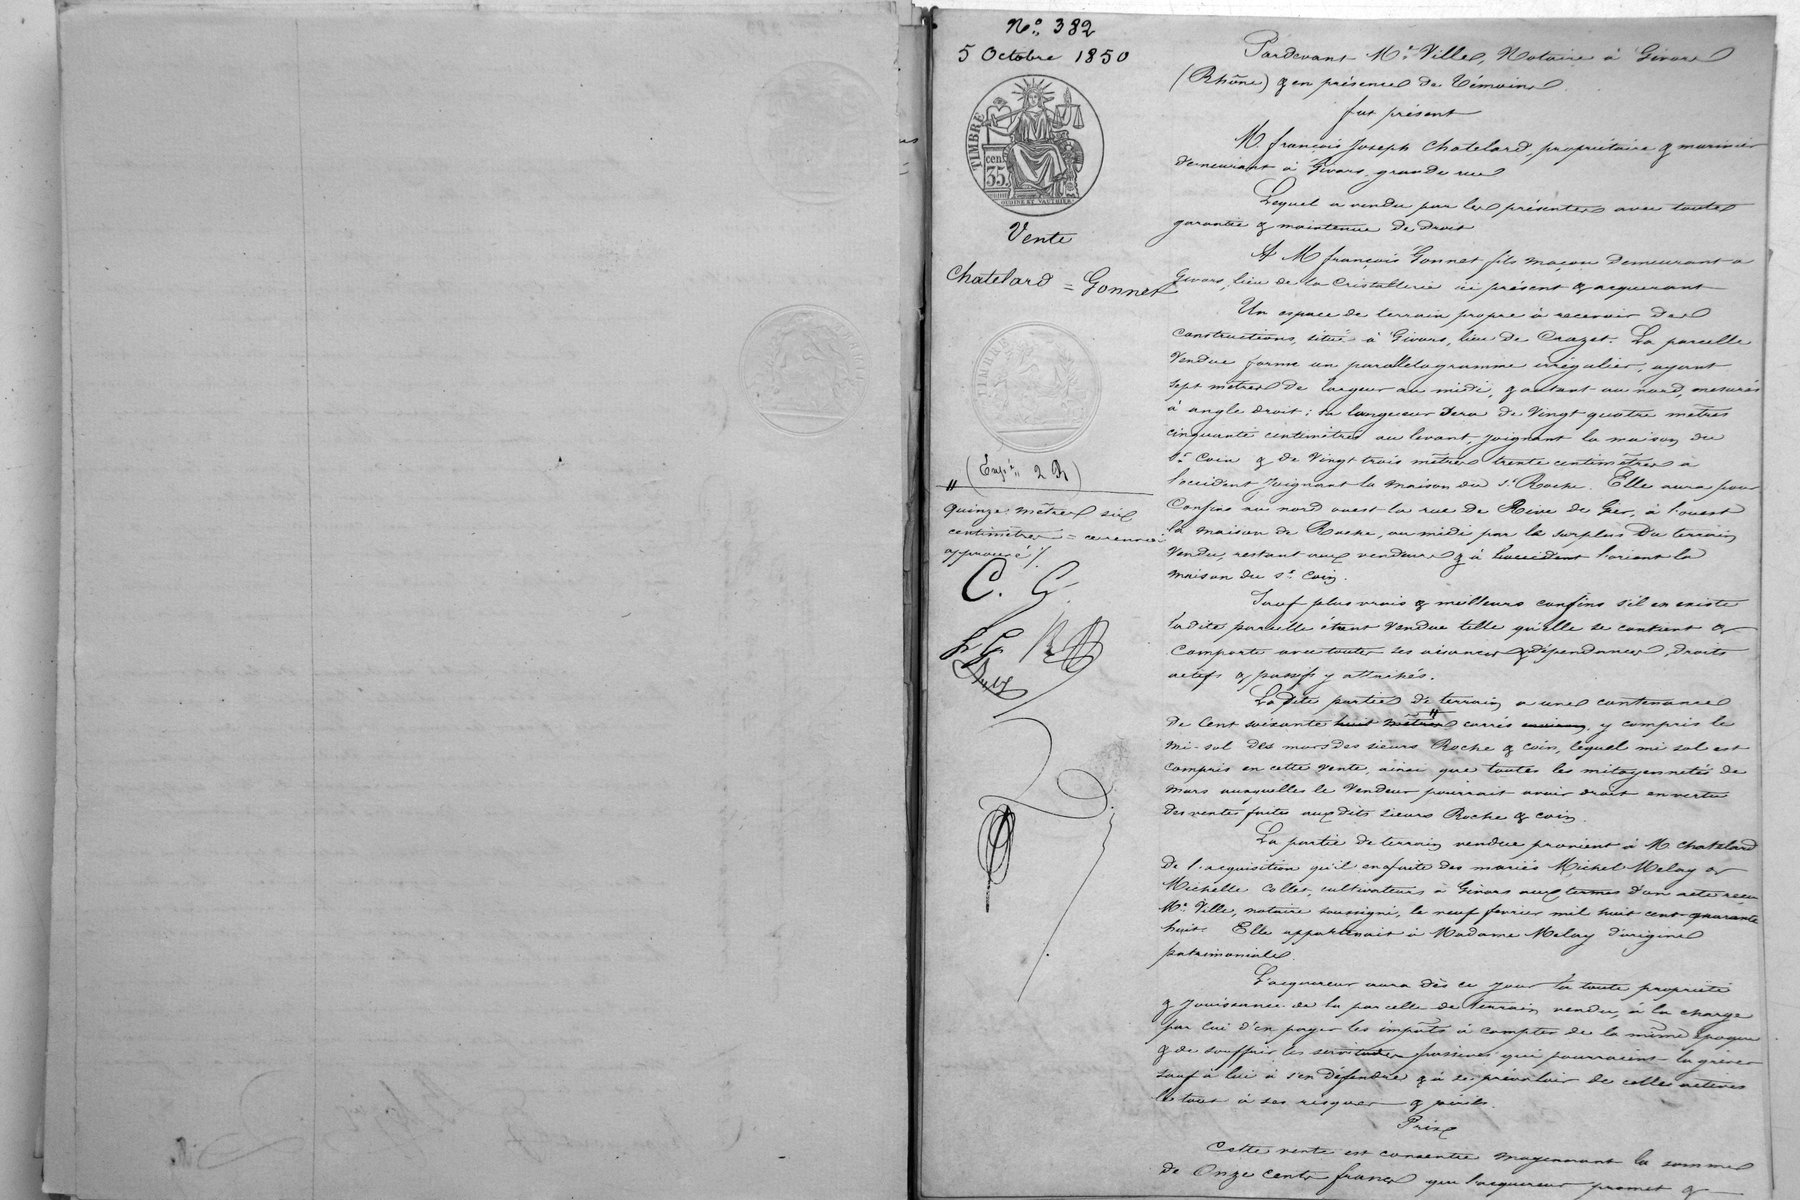 N° 382
5 Octobre 1850
TIMBRE
cent.
35.
OUDINÉ ET VAUTHIER
Vente
Chatelard = Gonnet
TIMBRE
2 R
quinze mètres six
centimètres = ce renvoi
approuvé /.
C. G.
Pardevant Me. Ville, Notaire à Givors
(Rhône) & en présence de Témoins
fut présent
M. françois Joseph Chatelard, propriétaire & marinier
demeurant à Givors grande rue
Lequel a vendu par les présentes avec toute
garantie & maintenue de droit
A M françois Gonnet fils maçon demeurant à
Givors, lieu de la Cristallerie ici présent & acquérant
Un espace de terrain propre à recevoir des
constructions, situé à Givors, lieu de Crozet. La parcelle
vendue forme un parallelogramme irrégulier, ayant
sept mètres de largeur au midi, & autant au nord, mesurés
à angle droit ; sa longueur sera de vingt quatre mètres
cinquante centimètres au levant, joignant la maison du
Sr. Coin & de vingt trois mètres trente centimètres à
l'occident joignant la maison du Sr Roche. Elle aura pour
Confins au nord ouest la rue de Rive de Gier, à l'ouest
la maison de Roche, au midi par le surplus du terrain
vendu, restant aux vendeurs & à l'occident l'orient la
maison du Sr. Coin.
Sauf plus vrais & meilleurs confins s'il en existe
ladite parcelle étant vendue telle qu'elle se contient &
Comporte avec toutes ses aisances & dépendances, droits
actifs & passifs y attachés.
La dite partie de terrain a une contenance
de Cent soixante huit mètres " carrés environ, y compris le
mi-sol des murs des sieurs Roche & Coin, lequel mi sol est
compris en cette vente, ainsi que toutes les mitoyennetés de
murs auxquelles le vendeur pourrait avoir droit en vertu
des ventes faites aux dits sieurs Roche & Coin.
La partie de terrain vendue provient à M Chatelard
de l'acquisition qu'il en a faite des mariés Michel Melay &
Michelle Collet, cultivateurs à Givors aux termes d'un acte reçu
Me. Ville, notaire soussigné, le neuf fevrier mil huit cent quarante
huit. Elle appartenait à Madame Melay d'origine
patrimoniale.
L'acquéreur aura dès ce jour la toute propriété
& jouissance de la parcelle de terrain vendue, à la charge
par lui d'en payer les impôts à compter de la même époque
& de souffrir les servitudes passives qui pourraient la grever
sauf à lui à s'en défendre & à se prévaloir de celles actives
le tout à ses risques & périls.
Prix
Cette vente est consentie moyennant la somme
de Onze cents francs que l'acquéreur promet &